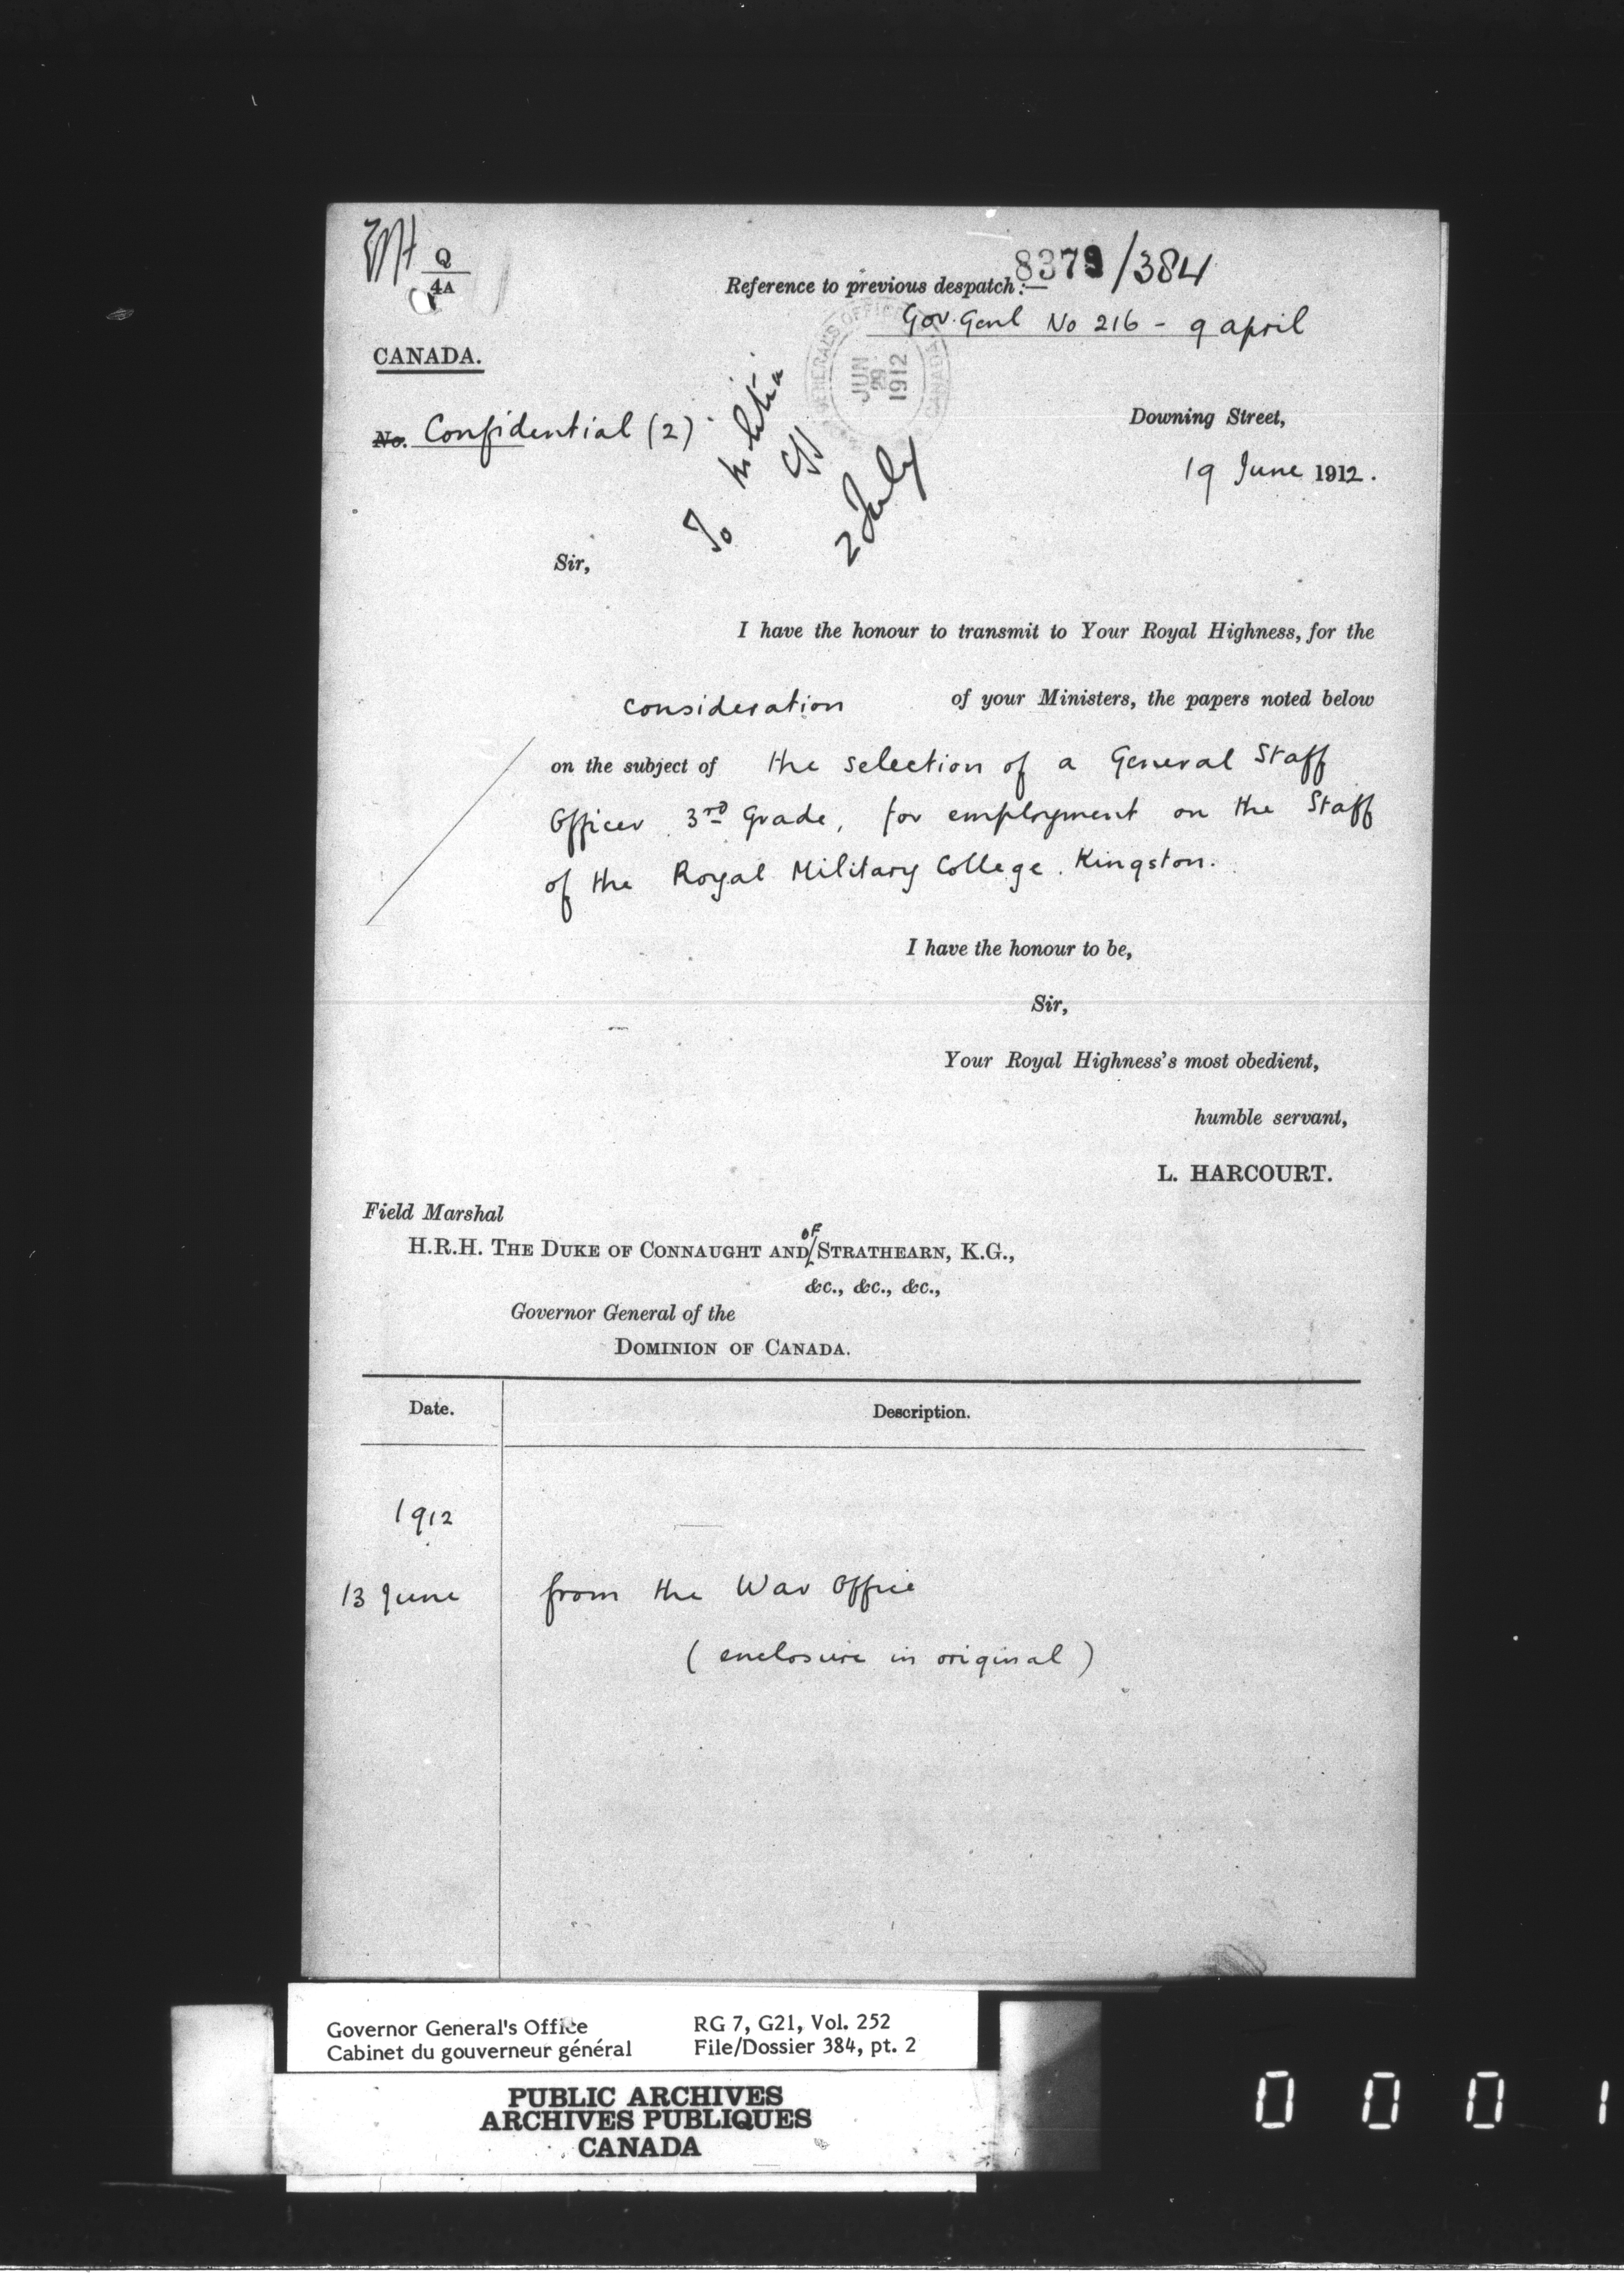 Q
4A
8379/384
Reference to previous despatch:—
Gov. Genl No 216 - 9 april
CANADA.
GENERAL'S OFFICE
CANADA
JUN
29
1912
To Militia
2 July
No. Confidential (2)
Downing Street,
19 June 1912.
Sir,
I have the honour to transmit to Your Royal Highness, for the
consideration of your Ministers, the papers noted below
on the subject of the selection of a General Staff
Officer 3rd Grade, for employment on the Staff
of the Royal Military College. Kingston.
I have the honour to be,
Sir,
Your Royal Highness's most obedient,
humble servant,
L. HARCOURT.
Field Marshal
H.R.H. THE DUKE OF CONNAUGHT AND OF STRATHEARN, K.G.,
&c., &c., &c.,
Governor General of the
DOMINION OF CANADA.
Date. Description.
1912
13 June from the War Office
(enclosure in original)
Governor General's Office RG 7, G21, Vol. 252
Cabinet du gouverneur général File/Dossier 384, pt. 2
PUBLIC ARCHIVES
ARCHIVES PUBLIQUES
CANADA
0 0 0 1